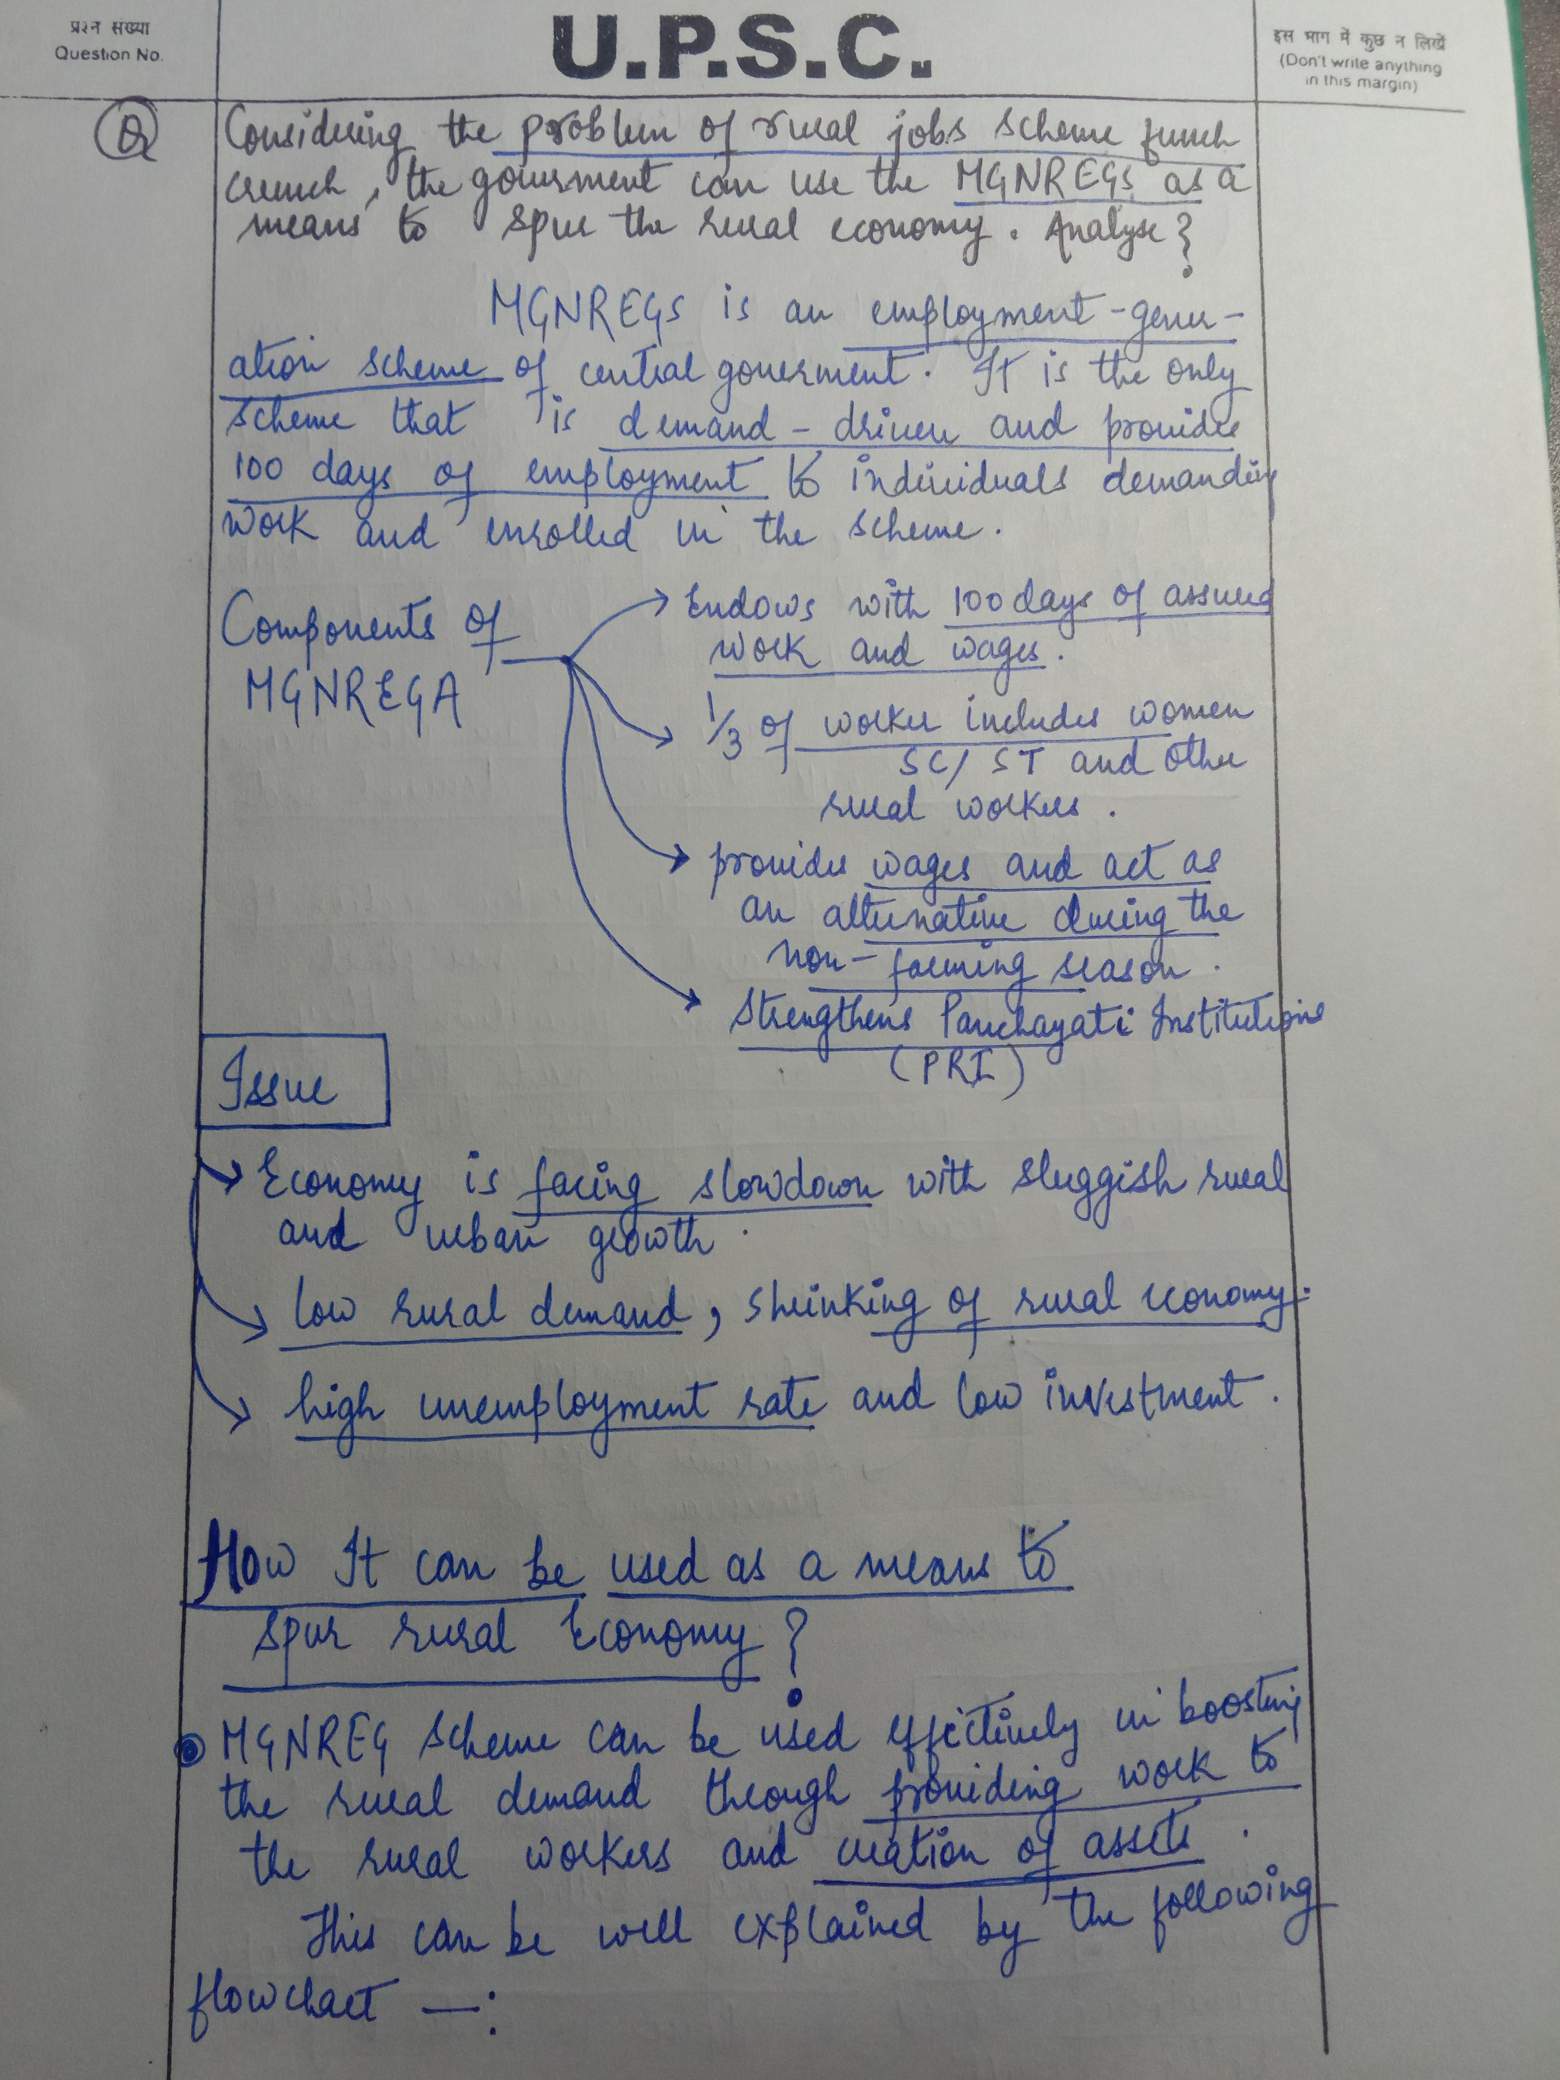 प्रश्न संख्या
Question No.
U.P.S.C.
इस भाग में कुछ न लिखें
(Don't write anything
in this margin)
Q
Considering the problem of rural jobs scheme funch
crunch, the government can use the MGNREGS as a
means to spur the rural economy. Analyse?
MGNREGS is an employment-gener-
ation scheme of central government. It is the only
scheme that is demand-driven and provides
100 days of employment to individuals demanding
work and enrolled in the scheme.
Components of
MGNREGA
Endows with 100 days of assured
work and wages.
1/3 of worker includes women
SC/ST and other
rural workers.
provides wages and act as
an alternative during the
non-farming season.
Strengthens Panchayati Institutions
(PRI)
Issue
Economy is facing slowdown with sluggish rural
and urban growth.
low rural demand, shrinking of rural economy.
high unemployment rate and low investment.
How It can be used as a means to
spur rural Economy?
MGNREG scheme can be used effectively in boosting
the rural demand through providing work to
the rural workers and creation of assets.
This can be well explained by the following
flowchart —: